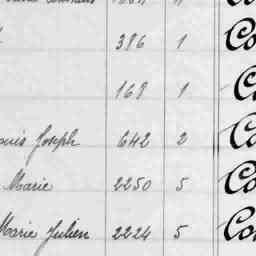 376 1 Co
168 1 C
ouis Joseph 642 2 Co
Marie 2250 5 Co
Marie Julien 2224 5 Co